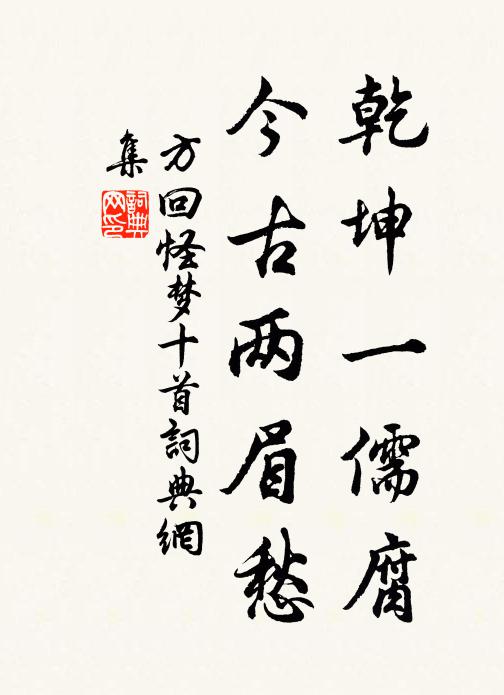 乾坤一儒腐
今古两眉愁
方回怪梦十首詞典網
集
詞典网印